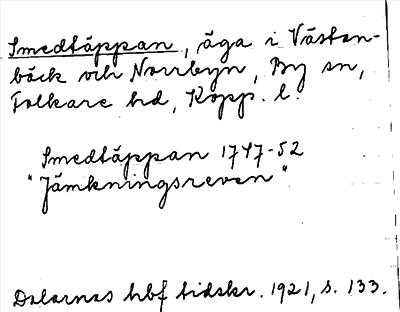 Smedtäppan, äga i Västan-
bäck och Norrbyn, By sn,
Folkare hd, Kopp. l.
Smedtäppan 1747-52
"Jämkningsreven"
Dalarnas hbf tidskr. 1921, s. 133.